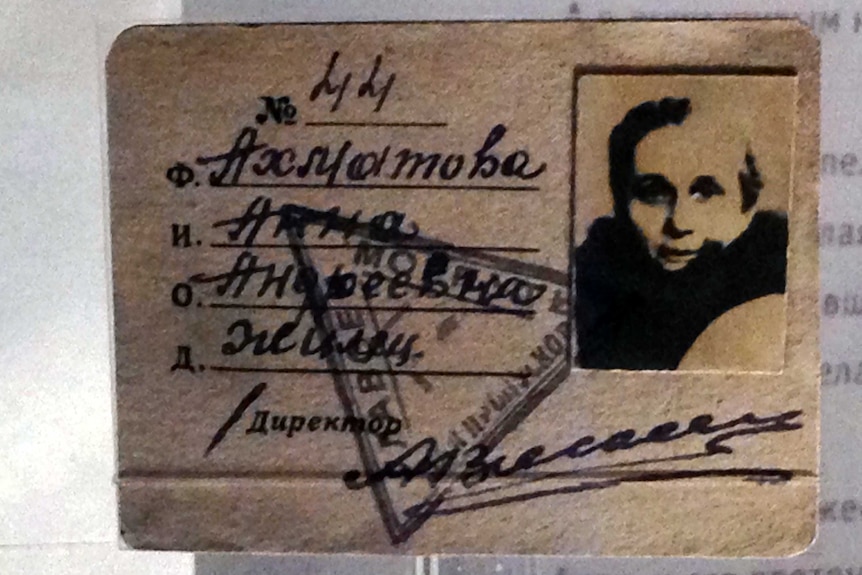 № 44
Ф. Ахматова
И. Анна
О. Андреевна
Д. Жилец.
/Директор